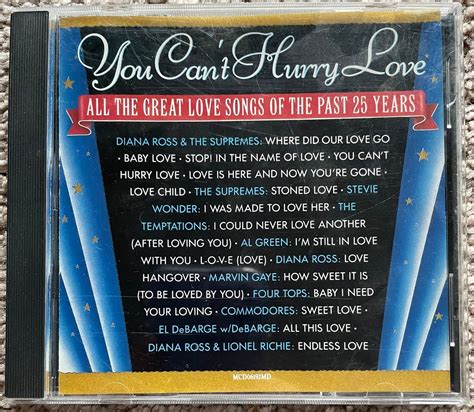 You Can't Hurry Love
ALL THE GREAT LOVE SONGS OF THE PAST 25 YEARS
DIANA ROSS & THE SUPREMES: WHERE DID OUR LOVE GO
· BABY LOVE · STOP! IN THE NAME OF LOVE · YOU CAN'T
HURRY LOVE · LOVE IS HERE AND NOW YOU'RE GONE ·
LOVE CHILD · THE SUPREMES: STONED LOVE · STEVIE
WONDER: I WAS MADE TO LOVE HER · THE
TEMPTATIONS: I COULD NEVER LOVE ANOTHER
(AFTER LOVING YOU) · AL GREEN: I'M STILL IN LOVE
WITH YOU · L-O-V-E (LOVE) · DIANA ROSS: LOVE
HANGOVER · MARVIN GAYE: HOW SWEET IT IS
(TO BE LOVED BY YOU) · FOUR TOPS: BABY I NEED
YOUR LOVING · COMMODORES: SWEET LOVE ·
EL DeBARGE w/DeBARGE: ALL THIS LOVE ·
DIANA ROSS & LIONEL RICHIE: ENDLESS LOVE
MCD06192MD